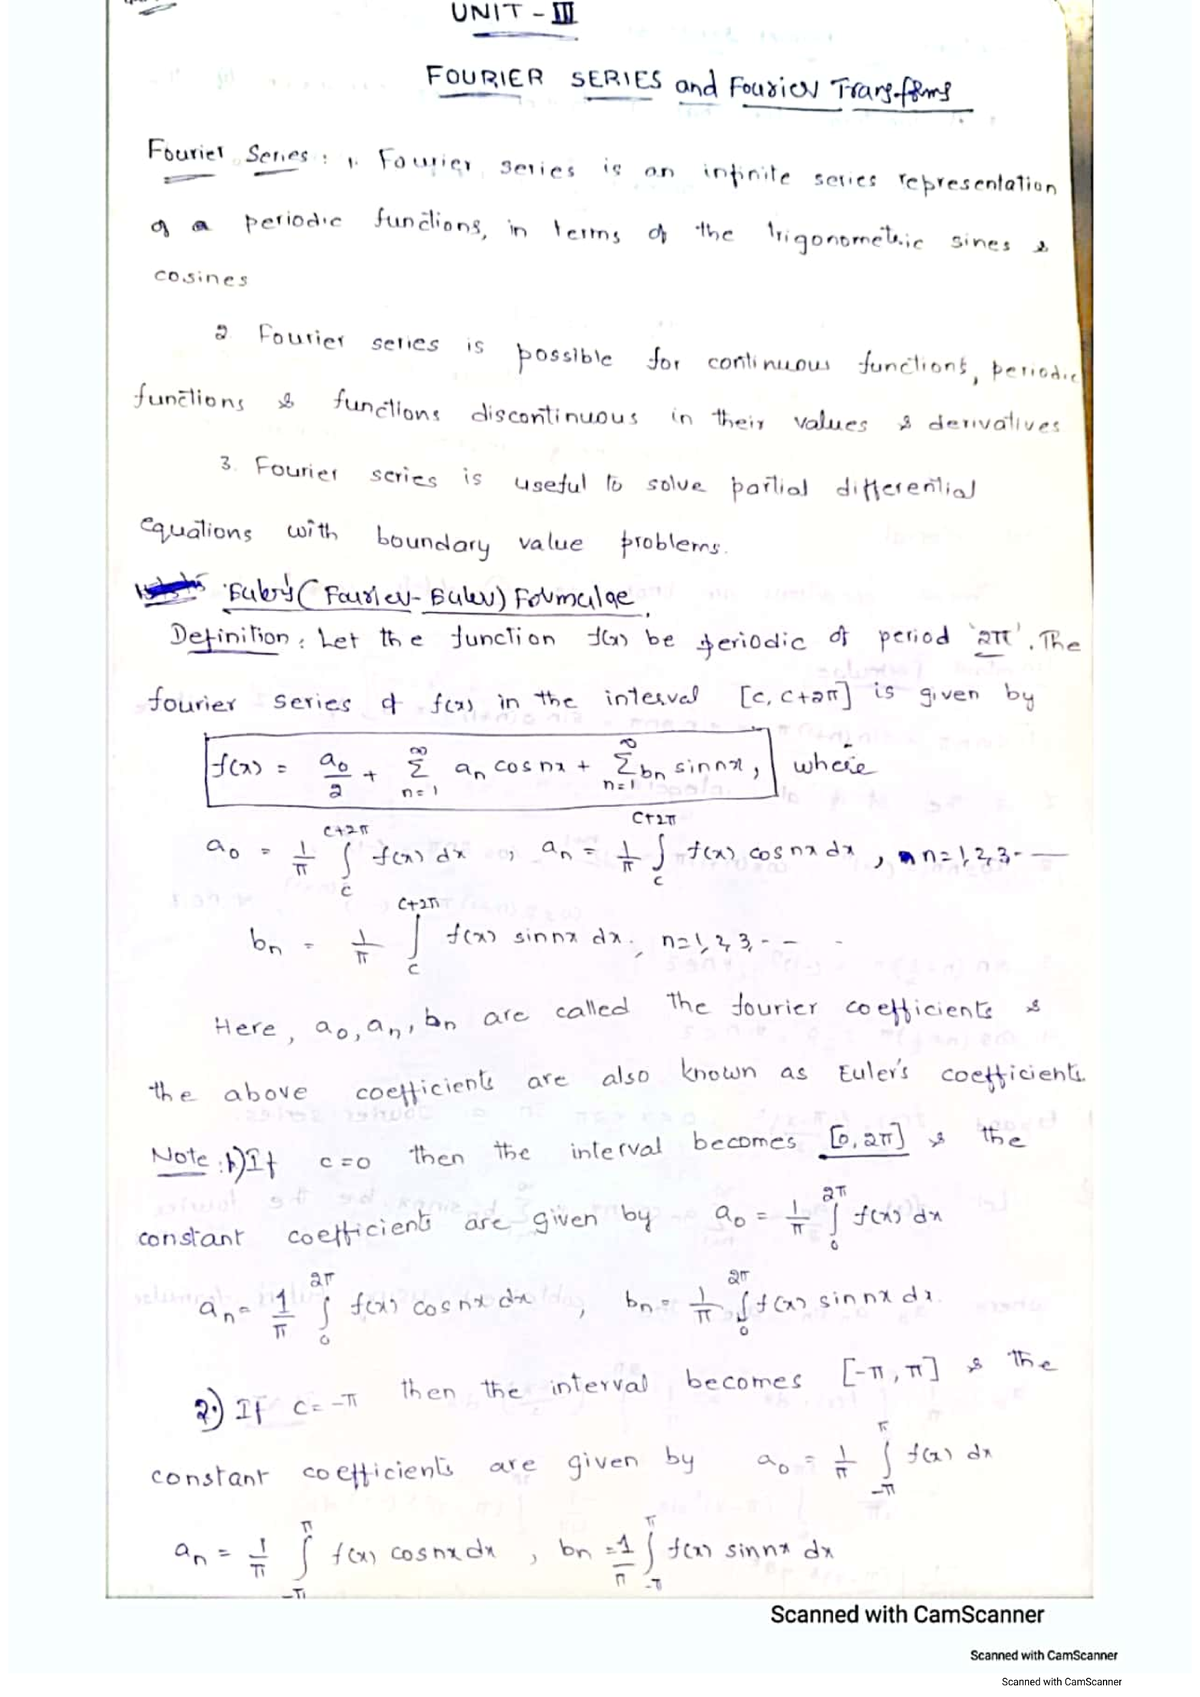 UNIT - III
FOURIER SERIES and Fourier Transforms
Fourier Series : 1. Fourier series is an infinite series representation
of a periodic functions, in terms of the trigonometric sines &
cosines
2. Fourier series is possible for continuous functions, periodic
functions & functions discontinuous in their values & derivatives
3. Fourier series is useful to solve partial differential
equations with boundary value problems.
Euler's (Fourier-Euler) Formulae.
Definition : Let the function f(x) be periodic of period '2π'. The
fourier series of f(x) in the interval [c, c+2π] is given by
f(x) = a₀/2 + ∞ Σ n=1 aₙ cos nx + ∞ Σ n=1 bₙ sin nx, where
a₀ = 1/π ∫_c^{c+2π} f(x) dx, aₙ = 1/π ∫_c^{c+2π} f(x) cos nx dx, n=1,2,3---
bₙ = 1/π ∫_c^{c+2π} f(x) sin nx dx, n=1,2,3,- - -
Here, a₀, aₙ, bₙ are called the fourier coefficients &
the above coefficients are also known as Euler's coefficients.
Note : 1) If c=0 then the interval becomes [0, 2π] & the
constant coefficients are given by a₀ = 1/π ∫_0^{2π} f(x) dx
aₙ = 1/π ∫_0^{2π} f(x) cos nx dx, bₙ = 1/π ∫_0^{2π} f(x) sin nx dx.
2.) If c = -π then the interval becomes [-π, π] & the
constant coefficients are given by a₀ = 1/π ∫_{-π}^{π} f(x) dx
aₙ = 1/π ∫_{-π}^{π} f(x) cos nx dx, bₙ = 1/π ∫_{-π}^{π} f(x) sin nx dx
Scanned with CamScanner
Scanned with CamScanner
Scanned with CamScanner